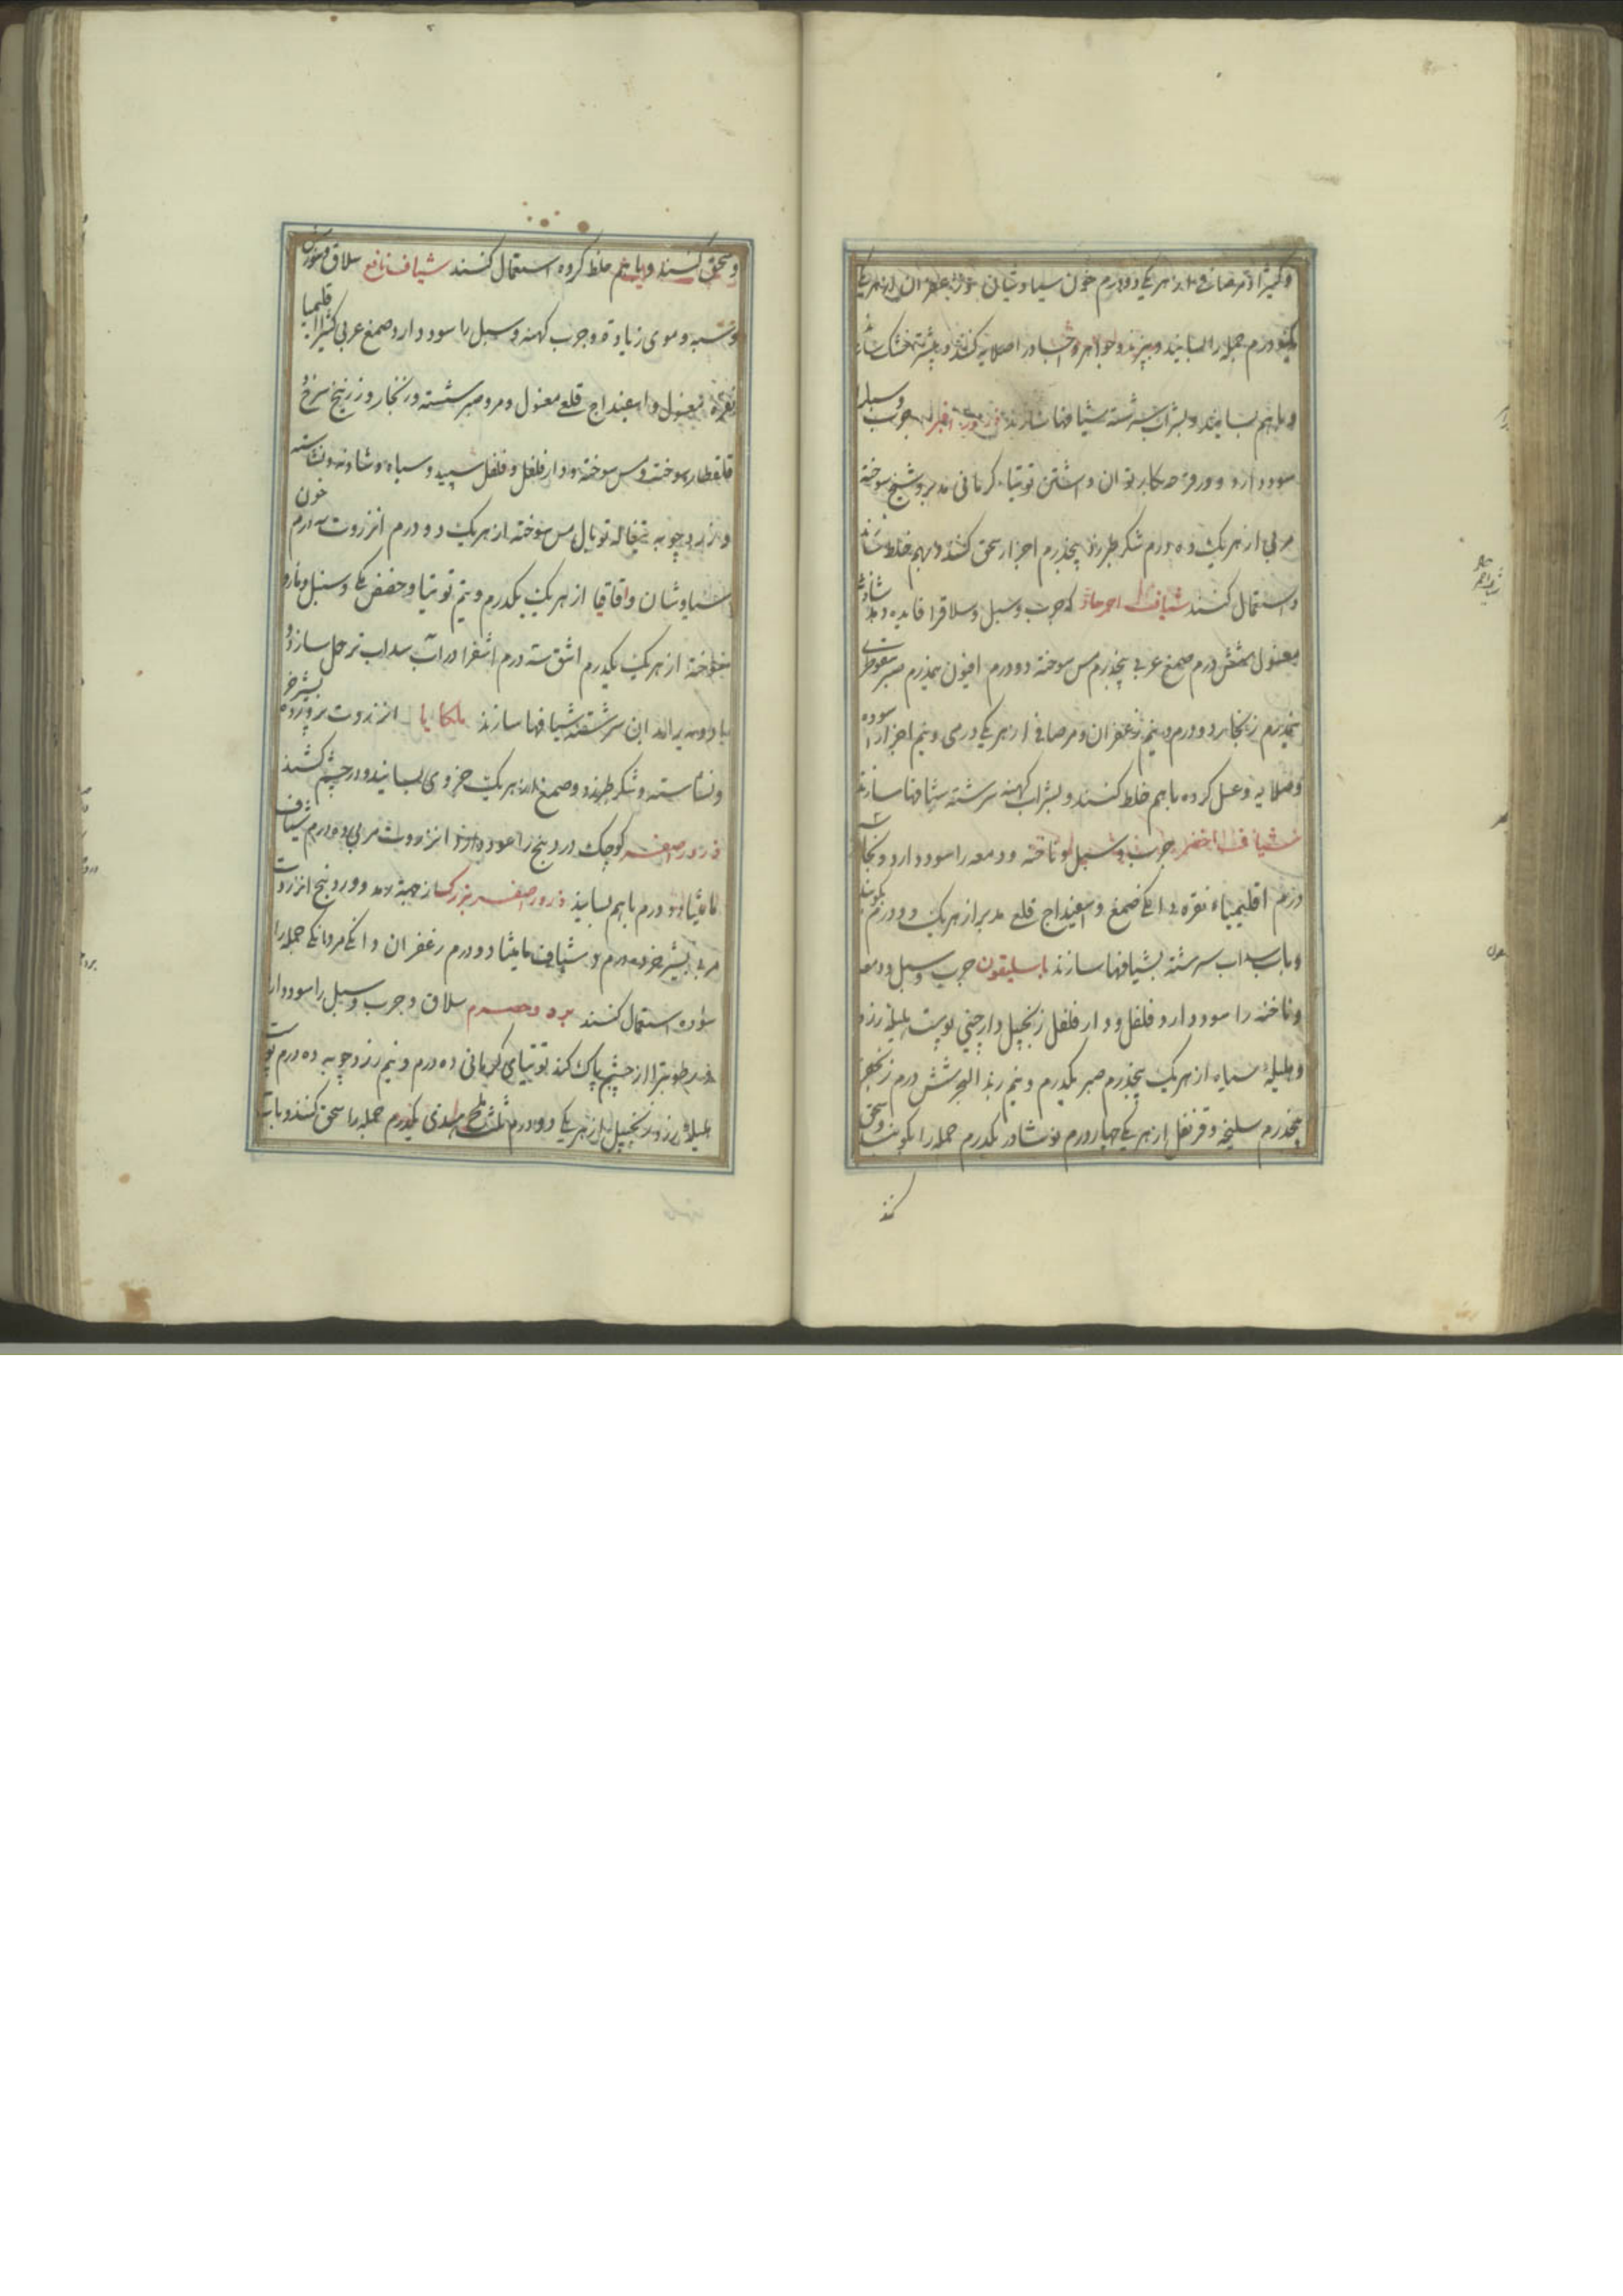 و کتیرا و مرصافی از هر یکی دو درم خون سیاوشان و زعفران از هر یکی
یکدرم جمله را بسایند و ببزند و جواهر و احجار را صلایه کنند و بشسته خشک سازند
و با هم بسایند و بشراب سرشته شیافها سازند ذرور اغبر جرب و سبل را
سود دارد و در رمد بکار توان داشتن توتیاء کرمانی مدبر و شنج سوخته
مربی از هر یک ده درم شکر طبرزد پنجدرم اجزا سحق کنند و بهم خلط سازند
و استعمال کنند شیاف احمر حاد که جرب و سبل و سلاق را فایده دهد شادنه
مغسول شش درم صمغ عربی پنجدرم مس سوخته دو درم افیون نیمدرم صبر سقوطری
نیمدرم زنجار دو درم و نیم زعفران و مرصافی از هر یکی درمی و نیم اجزا را سوده
و صلایه و غسل کرده با هم خلط کنند و بشراب کهنه سرشته شیافها سازند
شیاف اخضر جرب و سبل و ناخنه و دمعه را سود دارد زنجار سه
درم اقلیمیاء نقره دانکی صمغ و اسفیداج قلعی مدبر از هر یک دو درم بکوبند
و بآب سداب سرشته شیافها سازند باسلیقون جرب و سبل و دمعه
و ناخنه را سود دارد فلفل و دارفلفل زنجبیل دارچینی پوست هلیله زرد
و هلیله سیاه از هر یک پنجدرم صبر یکدرم و نیم زبد البحر شش درم زنجفر
پنجدرم سلیخه و قرنفل از هر یکی چهار درم نوشادر یکدرم جمله را بکوبند و سحق
کنند
و سحق کنند و با هم خلط کرده استعمال کنند شیاف نافع سلاق و سوزش
و شبه و موی زیاده و جرب کهنه و سبل را سود دارد صمغ عربی کتیرا اقلیمیا
نقره مغسول و اسفیداج قلعی مغسول و مر و صبر شسته و زنجار و زرنیخ سرخ و
قلقطار سوخته و مس سوخته و دارفلفل و فلفل سپید و سیاه و شادنه و نشاسته
و زردچوبه و توبال مس سوخته از هر یک دو درم انزروت سه درم خون
سیاوشان و اقاقیا از هر یک یکدرم و نیم توتیا و حضض مکی و سنبل و مازو
سوخته از هر یک یکدرم اشق سه درم اشق را در آب سداب تر حل سازند و
با ادویه بر آن سرشته شیافها سازند ملکایا انزروت پرورده بشیر خر
و نشاسته و شکر طبرزد و صمغ از هر یک جزوی بسایند و در چشم کشند
ذرور اصفر کوچک درد و پنج را سود دارد انزروت مربی ده درم شیاف
مامیثا دو درم با هم بسایند ذرور اصفر بزرک از جهة رمد و درد پنج انزروت
مربی بشیر خر ده درم و شیاف مامیثا دو درم زعفران دانکی مر دانکی جمله را
سوده استعمال کنند برود حصرم سلاق و جرب و سبل را سود دارد
و رطوبت را از چشم پاک کند توتیای کرمانی ده درم و نیم زردچوبه ده درم پوست
هلیله زرد و زنجبیل از هر یکی دو درم نمک هندی یکدرم جمله را سحق کنند و بآب